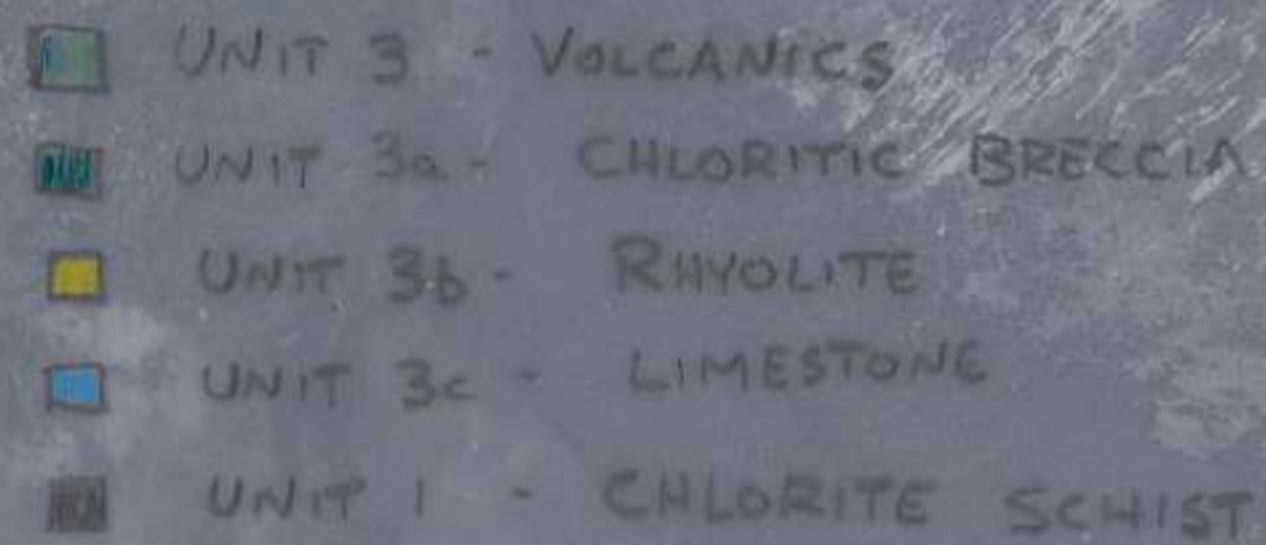 UNIT 3 - VOLCANICS
UNIT 3a - CHLORITIC BRECCIA
UNIT 3b - RHYOLITE
UNIT 3c - LIMESTONE
UNIT 1 - CHLORITE SCHIST